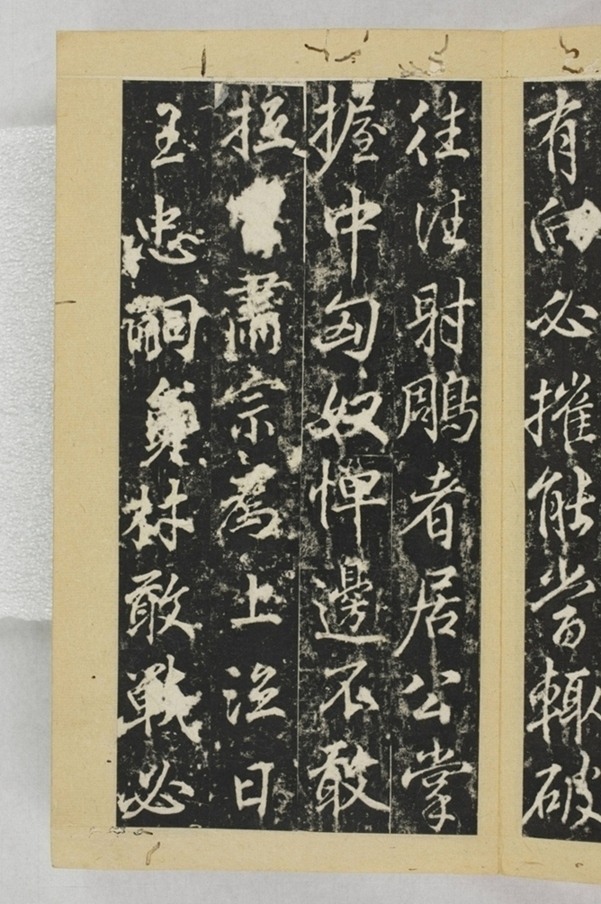 有向必摧能當輙破
往往射鵰者居公掌
握中匈奴憚邊不敢
肅宗為上日
王忠嗣林敢戰必